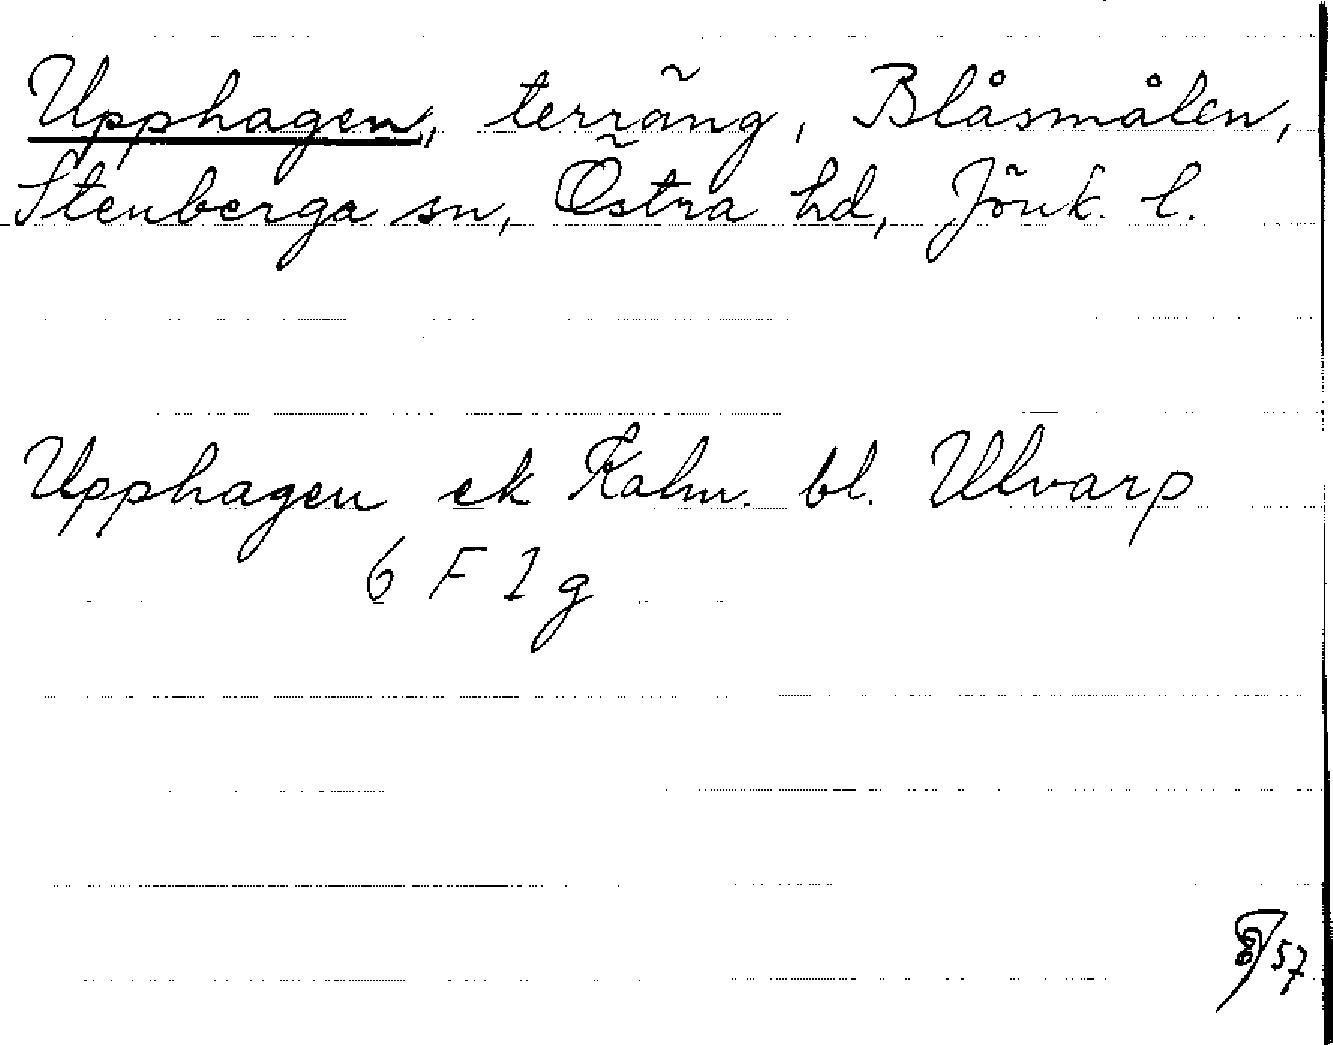 Upphagen, terräng, Blåsmålen,
Stenberga sn, Östra hd, Jönk. l.
Upphagen ek Kalm. bl. Ulvarp
6 F 1 g
57